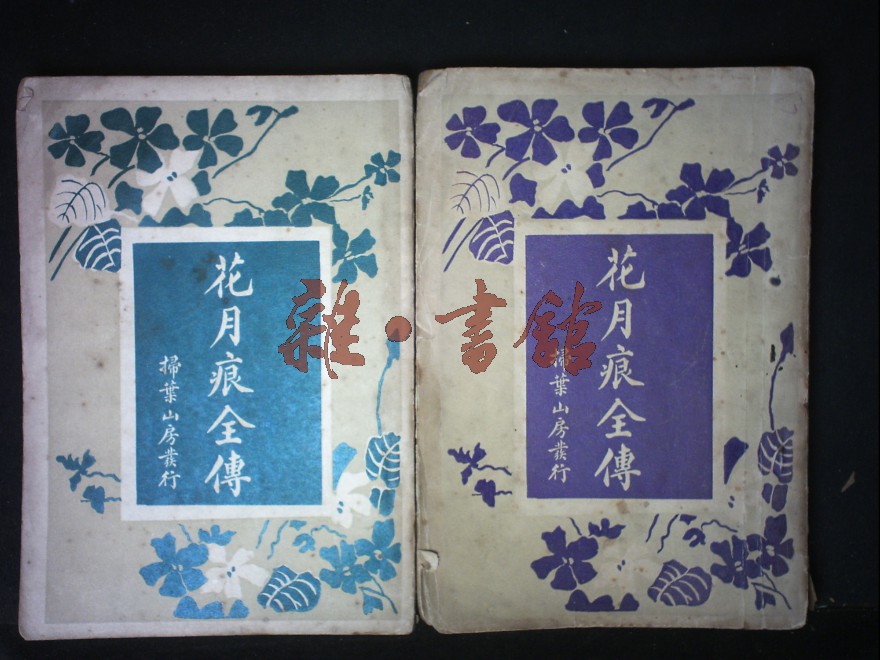 花月痕全傳
掃葉山房發行
雜·書館
花月痕全傳
掃葉山房發行